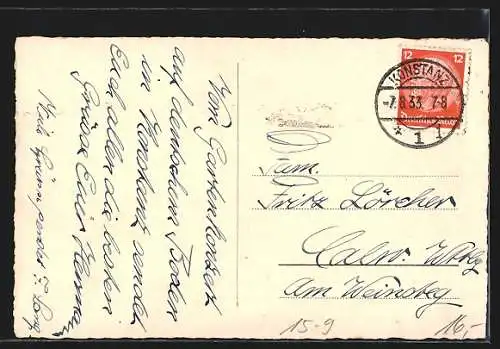 Vom Gartenkonzert
auf deutschem Boden
in Konstanz sendet
Euch allen die besten
Grüsse Euer Herman
Viele Grüsse sendet
12 12
KONSTANZ
-7.8.33. 7-8
* 1
Fam.
Fritz Lörcher
Calw. Wttbg
Am Weinsteg
15-9
16,-